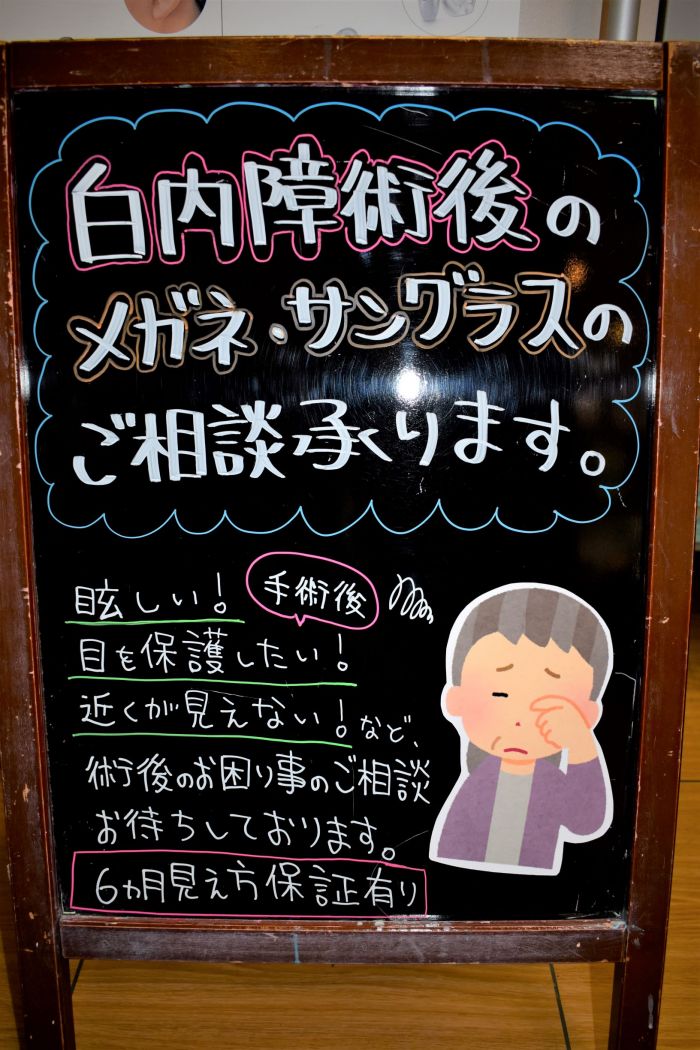 白内障術後の
メガネ・サングラスの
ご相談承ります。
眩しい！
手術後
目を保護したい！
近くが見えない！など、
術後のお困り事のご相談
お待ちしております。
6ヵ月見え方保証有り